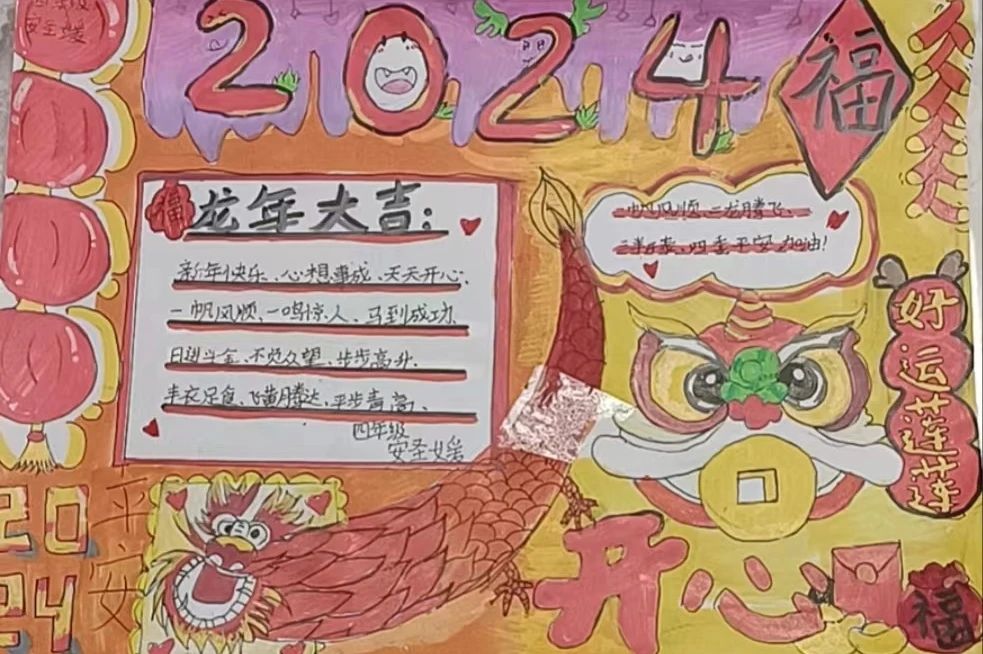 四年级
安圣媛
2024
福
福
龙年大吉:
新年快乐、心想事成、天天开心、
一帆风顺、一鸣惊人、马到成功、
日进斗金、不负众望、步步高升、
丰衣足食、飞黄腾达、平步青高、
四年级
安圣媛
一帆风顺、二龙腾飞、
三羊开泰、四季平安加油!
好运莲莲
20
24
平安
开心
福